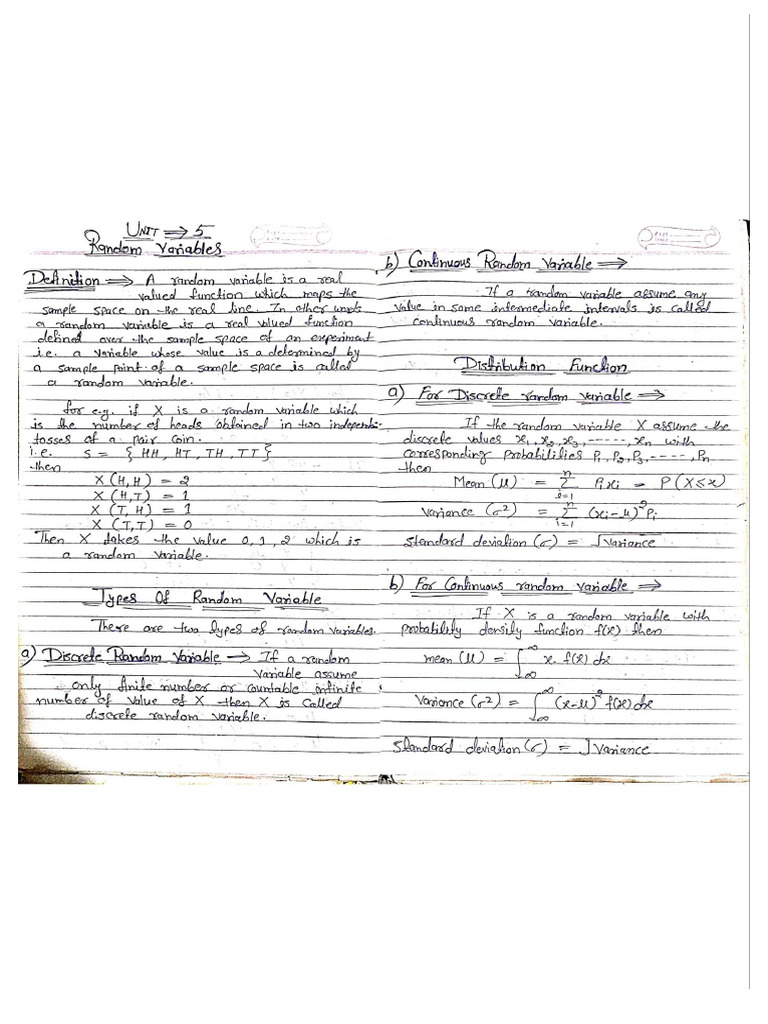 UNIT ⇒ 5
Random Variables
Definition ⇒ A random variable is a real
valued function which maps the
sample space on the real line. In other words
a random variable is a real valued function
defined over the sample space of an experiment
i.e. a variable whose value is a determined by
a sample point of a sample space is called
a random variable.
for e.g. if X is a random variable which
is the number of heads obtained in two independ
tosses of a pair coin.
i.e. S = { HH, HT, TH, TT }
then
X (H,H) = 2
X (H,T) = 1
X (T, H) = 1
X (T,T) = 0
Then X takes the value 0, 1, 2 which is
a random variable.
Types Of Random Variable
There are two types of random variables.
a) Discrete Random Variable → If a random
variable assume
only finite number or countable infinite
number of value of X then X is called
discrete random variable.
b) Continuous Random Variable ⇒
If a random variable assume any
value in some intermediate intervals is called
continuous random variable.
Distribution Function
a) For Discrete random variable ⇒
If the random variable X assume the
discrete values x₁, x₂, x₃, -----, xn with
corresponding probabilities P₁, P₂, P₃, ----, Pn
then
Mean (μ) = ∑ⁿᵢ₌₁ Pᵢxᵢ = P(X≤x)
variance (σ²) = ∑ⁿᵢ₌₁ (xᵢ-μ)²Pᵢ
standard deviation (σ) = √variance
b) For Continuous random variable ⇒
If X is a random variable with
probability density function f(x) then
mean (μ) = ∫∞∞ x. f(x) dx
Variance (σ²) = ∫∞∞ (x-μ)² f(x) dx
standard deviation(σ) = √Variance